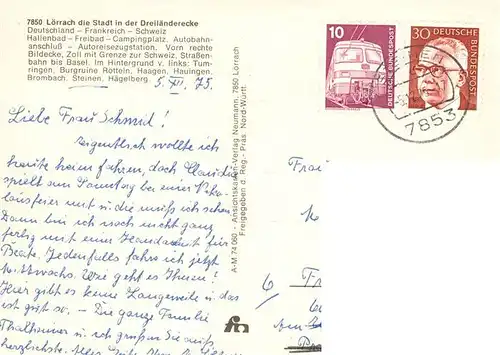 7850 Lörrach die Stadt in der Dreiländerecke
Deutschland – Frankreich – Schweiz
Hallenbad – Freibad – Campingplatz. Autobahn-
anschluß – Autoreisezugstation. Vorn rechte
Bildecke, Zoll mit Grenze zur Schweiz, Straßen-
bahn bis Basel. Im Hintergrund v. links: Tum-
ringen, Burgruine Rötteln, Haagen, Hauingen,
Brombach, Steinen, Hägelberg.
5. XII. 75.
Liebe Frau Schmid!
Eigentlich wollte ich
heute heimfahren, doch Claudia
spielt am Sonntag bei einer
mit u. die muß ich sehen
Dann bin ich noch nicht ganz
fertig mit einer Handarbeit für
Beate. Jedenfalls fahre ich jetzt
Mittwochs. Wie geht es Ihnen?
Hier gibt es keine Langeweile u. das
ist gut so. – Die ganze Familie
Thalheimer u. ich grüßen Sie aufs
herzlichste. Alles Gute
A-M 74 060 - Ansichtskarten-Verlag Neumann, 7850 Lörrach
Freigegeben d. Reg.- Präs. Nord-Württ.
10
DEUTSCHE BUNDESPOST
30
DEUTSCHE
BUNDESPOST
7853